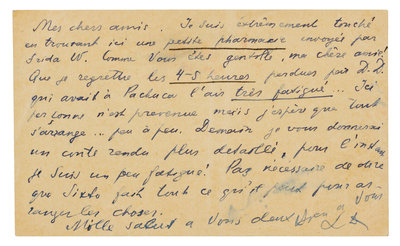 Mes chers amis. Je suis extrêmement touché
en trouvant ici une petite pharmacie envoyée par
Frida W. Comme vous êtes gentille, ma chère amie!
Que je regrette les 4-5 heures perdues par D.
qui avait à Pachuca l'air très fatigué... Ici
personne n'est prevenue mais j'espère que tout
s'arrange... peu à peu. Demain je vous donnerai
un conte rendu plus detaillé, pour l'instant
je suis un peu fatigué. Pas nécessaire de dire
que Sixto fait tout ce qu'il peut pour ar-
ranger les choses.
Mille salut à vous deux